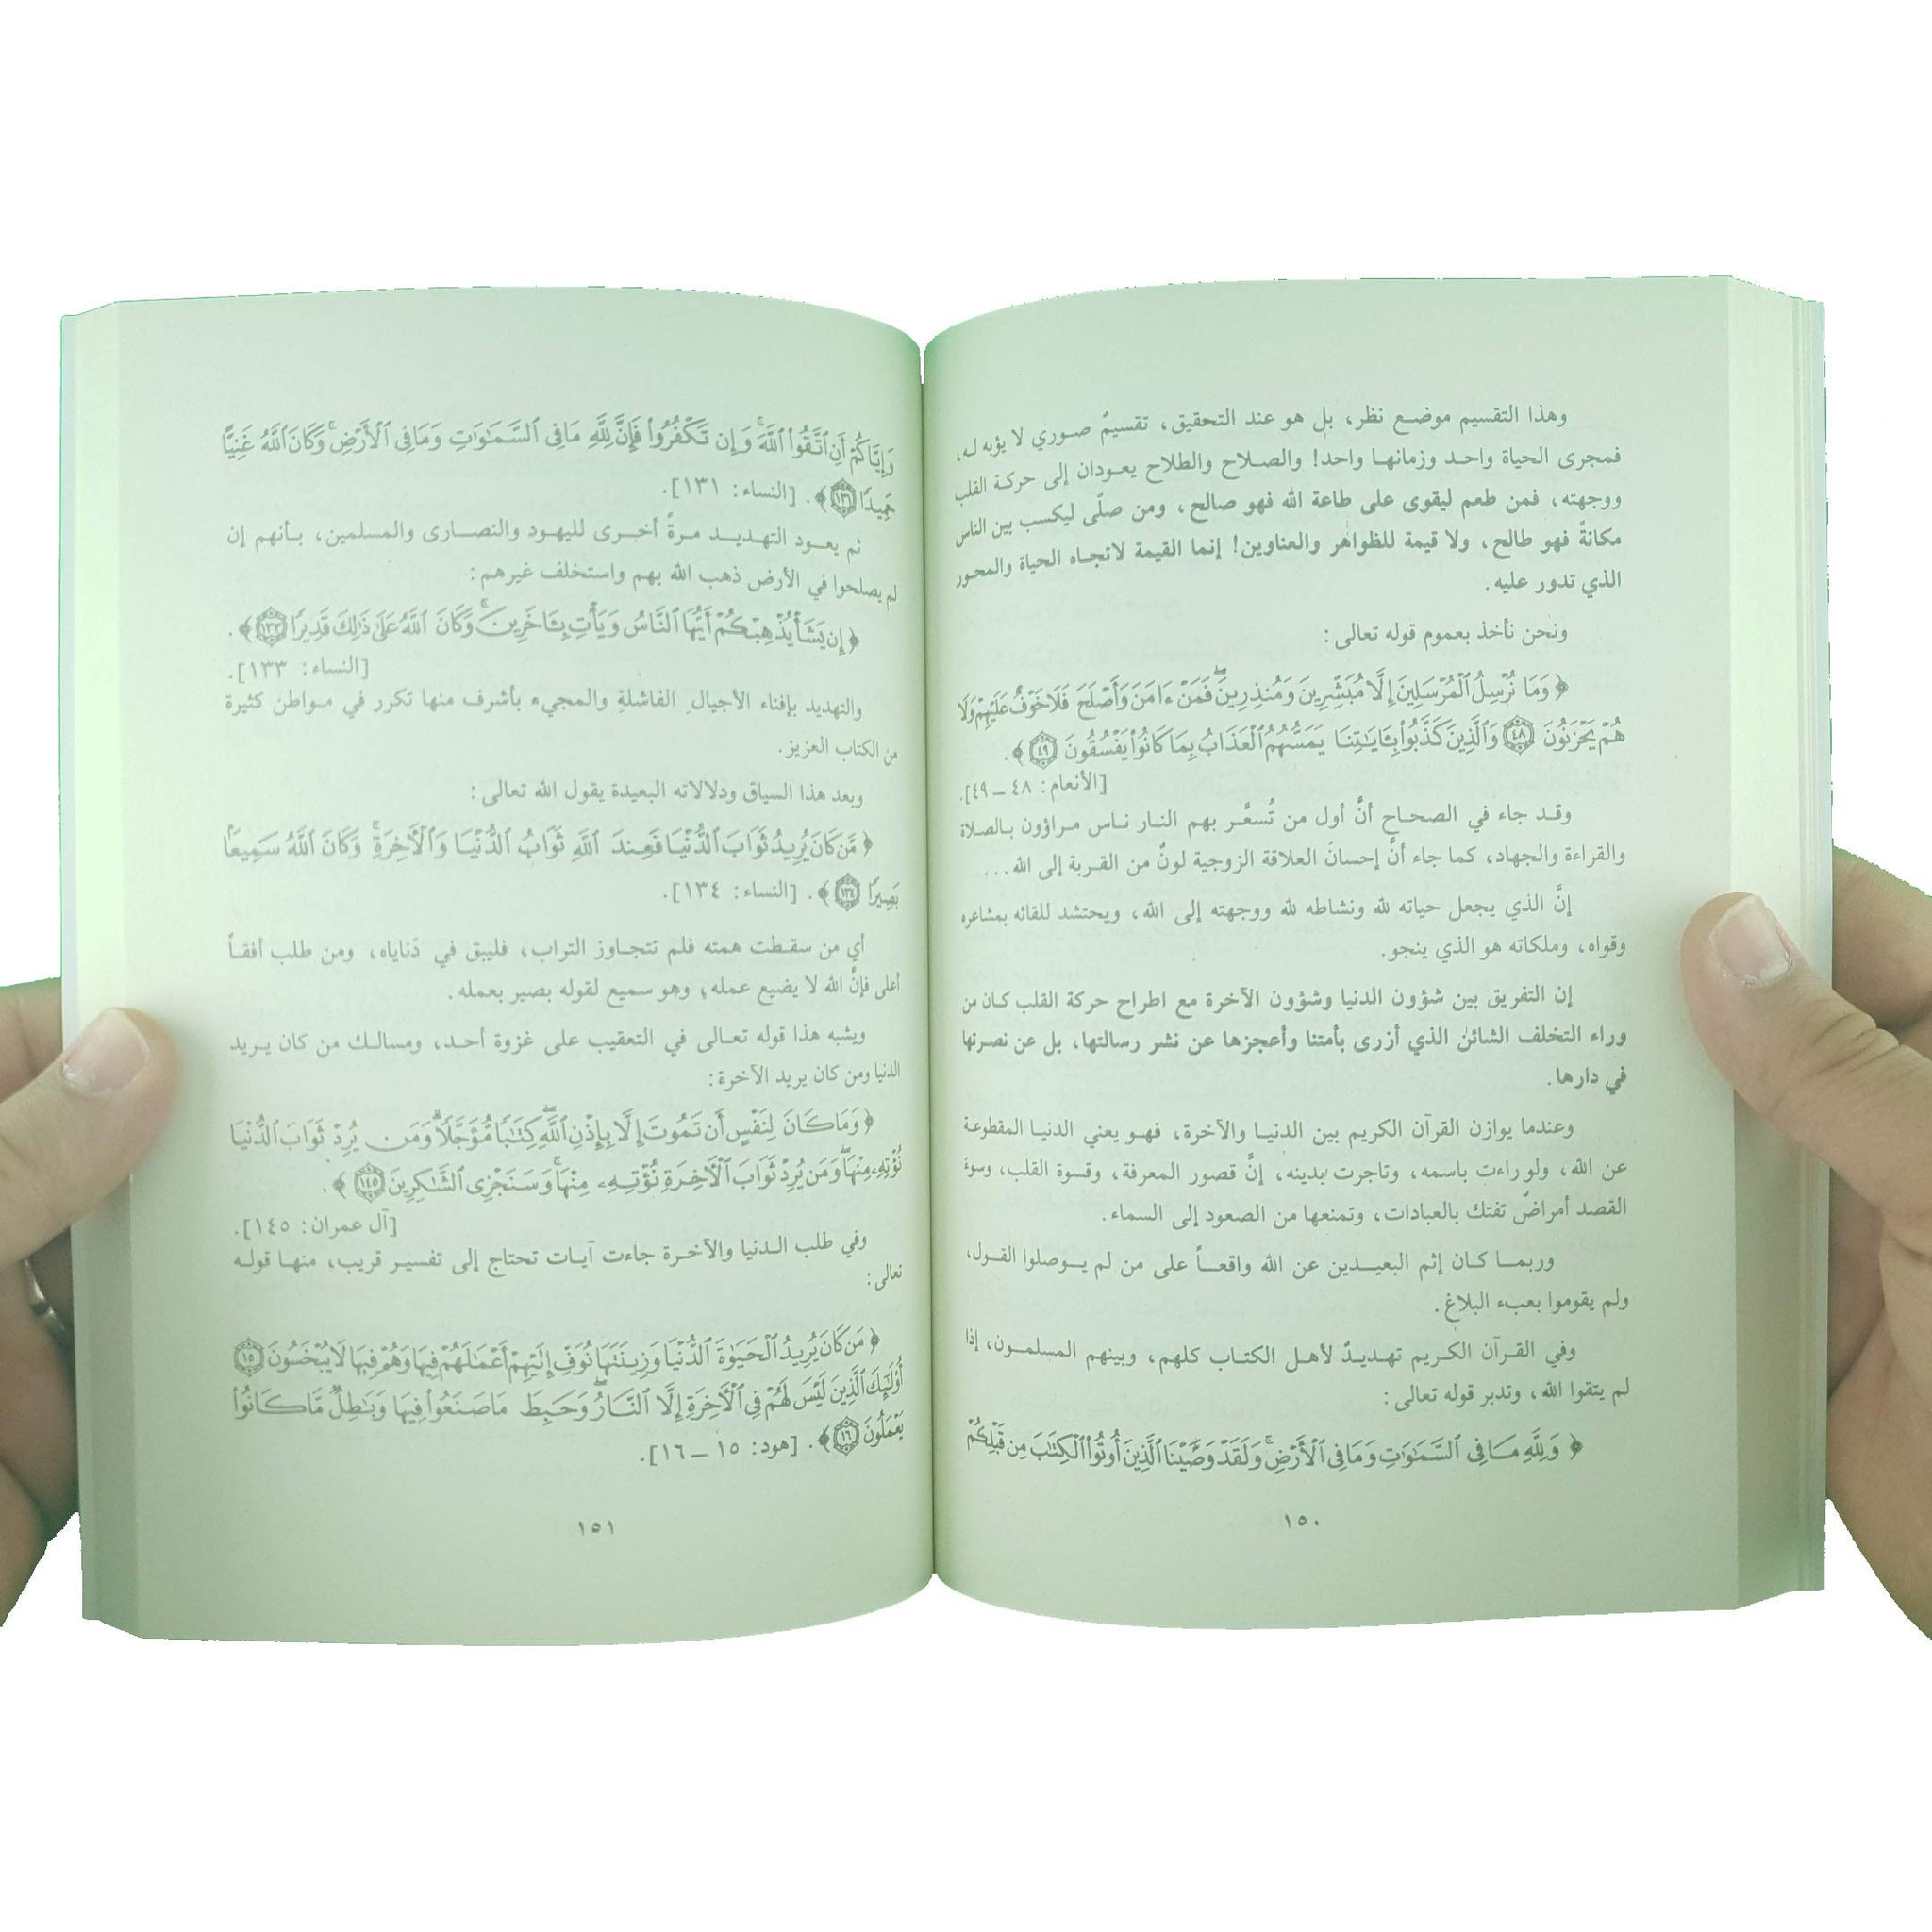 وهذا التقسيم موضع نظر، بل هو عند التحقيق، تقسيمٌ صوري لا يؤبه له،
فمجرى الحياة واحد وزمانها واحد! والصلاح والطلاح يعودان إلى حركة القلب
ووجهته، فمن طعم ليقوى على طاعة الله فهو صالح، ومن صلّى ليكسب بين الناس
مكانةً فهو طالح، ولا قيمة للظواهر والعناوين! إنما القيمة لاتجاه الحياة والمحور
الذي تدور عليه.
ونحن نأخذ بعموم قوله تعالى:
﴿ وَمَا نُرْسِلُ ٱلْمُرْسَلِينَ إِلَّا مُبَشِّرِينَ وَمُنذِرِينَ ۖ فَمَنْ ءَامَنَ وَأَصْلَحَ فَلَا خَوْفٌ عَلَيْهِمْ وَلَا
هُمْ يَحْزَنُونَ ۝٤٨ وَٱلَّذِينَ كَذَّبُوا۟ بِـَٔايَـٰتِنَا يَمَسُّهُمُ ٱلْعَذَابُ بِمَا كَانُوا۟ يَفْسُقُونَ ۝٤٩ ﴾.
[الأنعام: ٤٨ ــ ٤٩].
وقد جاء في الصحاح أنَّ أول من تُسعَّر بهم النار ناس مراؤون بالصلاة
والقراءة والجهاد، كما جاء أنَّ إحسانَ العلاقة الزوجية لونٌ من القربة إلى الله...
إنَّ الذي يجعل حياته لله ونشاطه لله ووجهته إلى الله، ويحتشد للقائه بمشاعره
وقواه، وملكاته هو الذي ينجو.
إن التفريق بين شؤون الدنيا وشؤون الآخرة مع اطراح حركة القلب كان من
وراء التخلف الشائن الذي أزرى بأمتنا وأعجزها عن نشر رسالتها، بل عن نصرتها
في دارها.
وعندما يوازن القرآن الكريم بين الدنيا والآخرة، فهو يعني الدنيا المقطوعة
عن الله، ولو راءت باسمه، وتاجرت بدينه، إنَّ قصور المعرفة، وقسوة القلب، وسوء
القصد أمراضٌ تفتك بالعبادات، وتمنعها من الصعود إلى السماء.
وربما كان إثم البعيدين عن الله واقعاً على من لم يوصلوا القول،
ولم يقوموا بعبء البلاغ.
وفي القرآن الكريم تهديدٌ لأهل الكتاب كلهم، وبينهم المسلمون، إذا
لم يتقوا الله، وتدبر قوله تعالى:
﴿ وَلِلَّهِ مَا فِى ٱلسَّمَـٰوَٰتِ وَمَا فِى ٱلْأَرْضِ ۗ وَلَقَدْ وَصَّيْنَا ٱلَّذِينَ أُوتُوا۟ ٱلْكِتَـٰبَ مِن قَبْلِكُمْ
١٥٠
وَإِيَّاكُمْ أَنِ ٱتَّقُوا۟ ٱللَّهَ ۚ وَإِن تَكْفُرُوا۟ فَإِنَّ لِلَّهِ مَا فِى ٱلسَّمَـٰوَٰتِ وَمَا فِى ٱلْأَرْضِ ۚ وَكَانَ ٱللَّهُ غَنِيًّا
حَمِيدًا ۝١٣١ ﴾. [النساء: ١٣١].
ثم يعود التهديد مرةً أخرى لليهود والنصارى والمسلمين، بأنهم إن
لم يصلحوا في الأرض ذهب الله بهم واستخلف غيرهم:
﴿ إِن يَشَأْ يُذْهِبْكُمْ أَيُّهَا ٱلنَّاسُ وَيَأْتِ بِـَٔاخَرِينَ ۚ وَكَانَ ٱللَّهُ عَلَىٰ ذَٰلِكَ قَدِيرًا ۝١٣٣ ﴾.
[النساء: ١٣٣].
والتهديد بإفناء الأجيال الفاشلةِ والمجيء بأشرف منها تكرر في مواطن كثيرة
من الكتاب العزيز.
وبعد هذا السياق ودلالاته البعيدة يقول الله تعالى:
﴿ مَّن كَانَ يُرِيدُ ثَوَابَ ٱلدُّنْيَا فَعِندَ ٱللَّهِ ثَوَابُ ٱلدُّنْيَا وَٱلْـَٔاخِرَةِ ۚ وَكَانَ ٱللَّهُ سَمِيعًۢا
بَصِيرًا ۝١٣٤ ﴾. [النساء: ١٣٤].
أي من سقطت همته فلم تتجاوز التراب، فليبق في دَناياه، ومن طلب أفقاً
أعلى فإنَّ الله لا يضيع عمله؛ وهو سميع لقوله بصير بعمله.
ويشبه هذا قوله تعالى في التعقيب على غزوة أحد، ومسالك من كان يريد
الدنيا ومن كان يريد الآخرة:
﴿ وَمَا كَانَ لِنَفْسٍ أَن تَمُوتَ إِلَّا بِإِذْنِ ٱللَّهِ كِتَـٰبًا مُّؤَجَّلًا ۗ وَمَن يُرِدْ ثَوَابَ ٱلدُّنْيَا
نُؤْتِهِۦ مِنْهَا وَمَن يُرِدْ ثَوَابَ ٱلْـَٔاخِرَةِ نُؤْتِهِۦ مِنْهَا ۚ وَسَنَجْزِى ٱلشَّـٰكِرِينَ ۝١٤٥ ﴾.
[آل عمران: ١٤٥].
وفي طلب الدنيا والآخرة جاءت آيات تحتاج إلى تفسير قريب، منها قوله
تعالى:
﴿ مَن كَانَ يُرِيدُ ٱلْحَيَوٰةَ ٱلدُّنْيَا وَزِينَتَهَا نُوَفِّ إِلَيْهِمْ أَعْمَـٰلَهُمْ فِيهَا وَهُمْ فِيهَا لَا يُبْخَسُونَ ۝١٥
أُو۟لَـٰٓئِكَ ٱلَّذِينَ لَيْسَ لَهُمْ فِى ٱلْـَٔاخِرَةِ إِلَّا ٱلنَّارُ ۖ وَحَبِطَ مَا صَنَعُوا۟ فِيهَا وَبَـٰطِلٌ مَّا كَانُوا۟
يَعْمَلُونَ ۝١٦ ﴾. [هود: ١٥ ــ ١٦].
١٥١